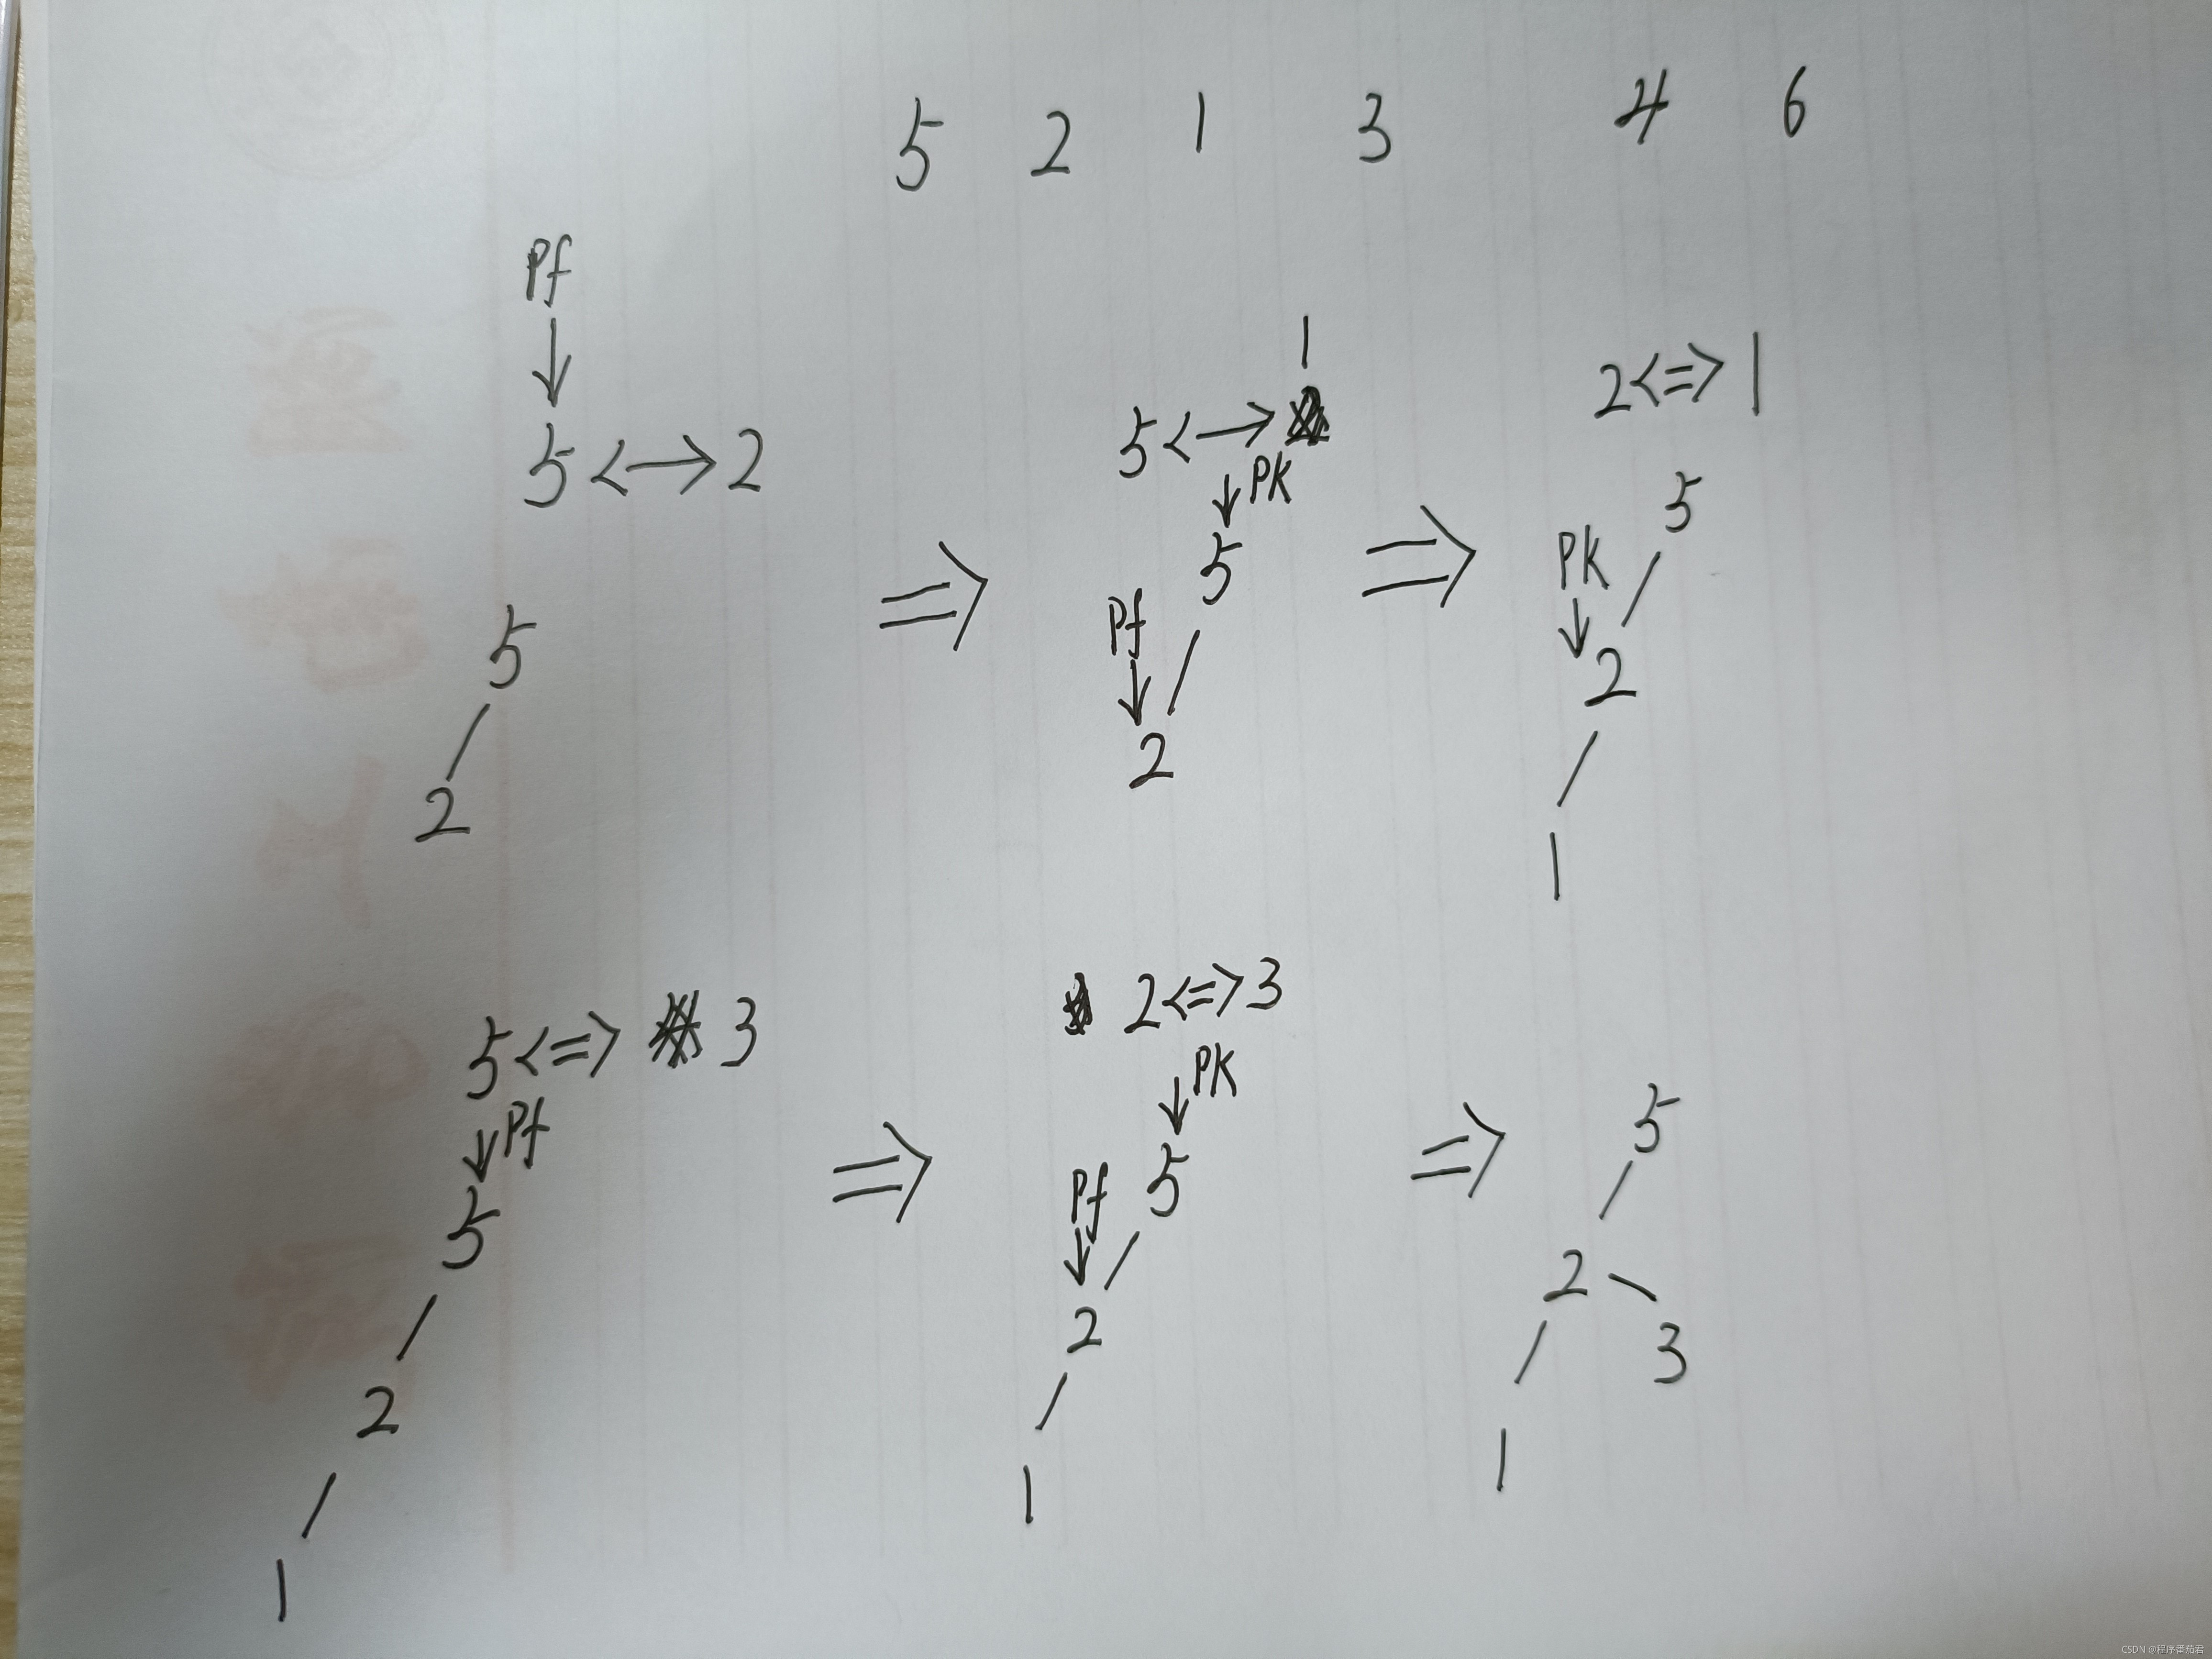 5 2 1 3 4 6
Pf
5 <—> 2
5
2
1
5 <—>
PK
5
Pf
2
2 <=> 1
5
PK
2
1
5 <=> 3
Pf
5
2
1
2 <=> 3
PK
5
Pf
2
1
5
2
3
1
CSDN @程序番茄君